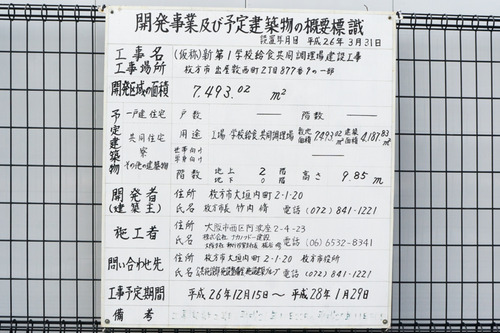 開発事業及び予定建築物の概要標識
設置年月日 平成26年3月31日
工事名 (仮称)新第1学校給食共同調理場建設工事
工事場所 枚方市 出屋敷西町2丁目877番9の一部
開発区域の面積 7.493.02 m²
予定建築物
一戸建住宅 戸数 階数
共同住宅
寮
その他の建築物
用途 工場 学校給食共同調理場 敷地面積 7493.02 建築面積 4,187.83
世帯向け
単身向け
階数 地上 2 階 高さ 9.85 m
地下 0 階
開発者 住所 枚方市大垣内町2-1-20
(建築主) 氏名 枚方市長 竹内 脩 電話 (072) 841-1221
施工者 住所 大阪市西区阿波座2-4-23
氏名 株式会社 ナカノフドー建設 電話 (06) 6532-8341
問い合わせ先 住所 枚方市大垣内町2-1-20 枚方市役所
氏名 電話 (072) 841-1221
工事予定期間 平成26年12月15日～平成28年1月29日
備考